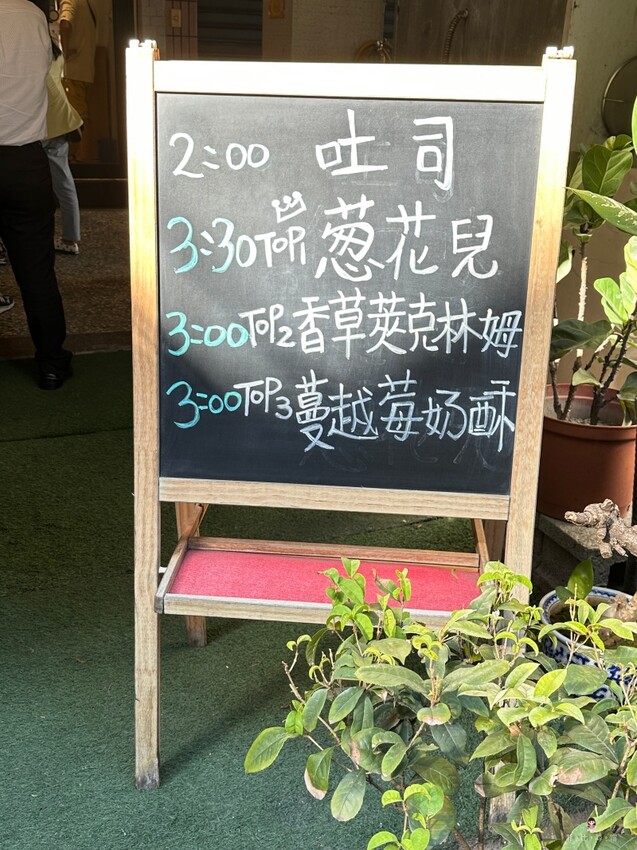 2:00 吐司
3:30 TOP1 蔥花兒
3:00 TOP2 香草萊克林姆
3:00 TOP3 蔓越莓奶酥